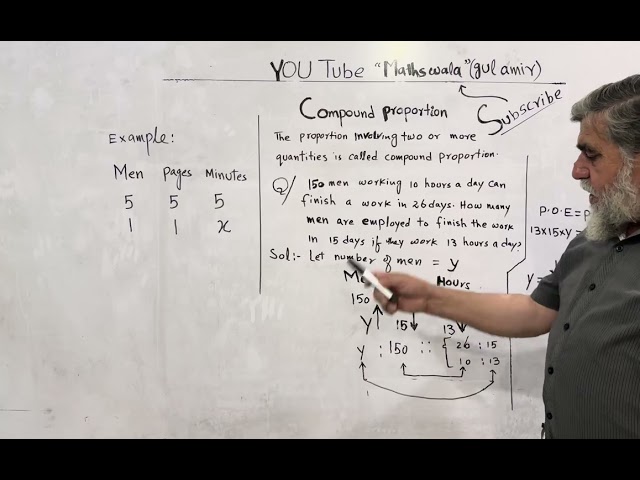 YOU Tube "Mathswala" (gul amir)
Subscribe
Compound proportion
The proportion involving two or more
quantities is called compound proportion.
Q/ 150 men working 10 hours a day can
finish a work in 26 days. How many
men are employed to finish the work
in 15 days if they work 13 hours a day?
Sol:- Let number of men = y
Hours
150
y 15 13
y : 150 :: { 26 : 15
10 : 13
Example:
Men Pages Minutes
5 5 5
1 1 x
P.O.E=P
13x15xy =
y =